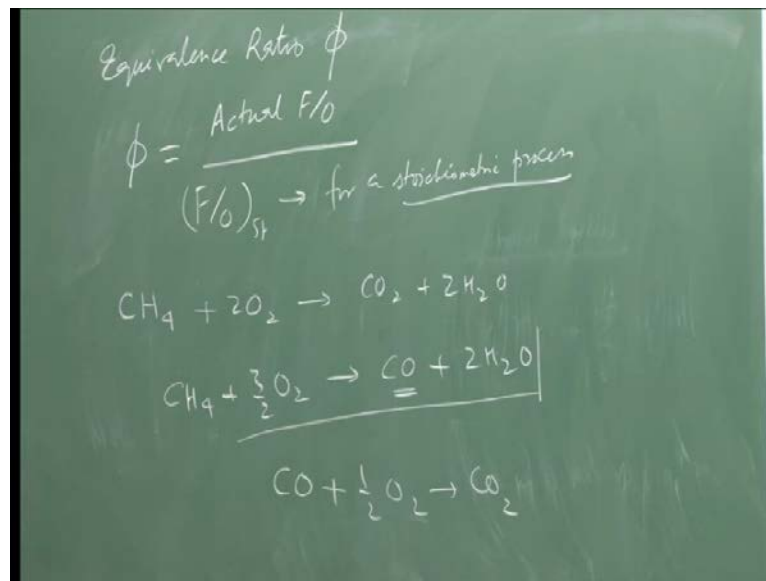 Equivalence Ratio ϕ
ϕ = Actual F/O
(F/O)st → for a stoichiometric process
CH₄ + 2O₂ → CO₂ + 2H₂O
CH₄ + 3/2 O₂ → CO + 2H₂O
CO + 1/2 O₂ → CO₂